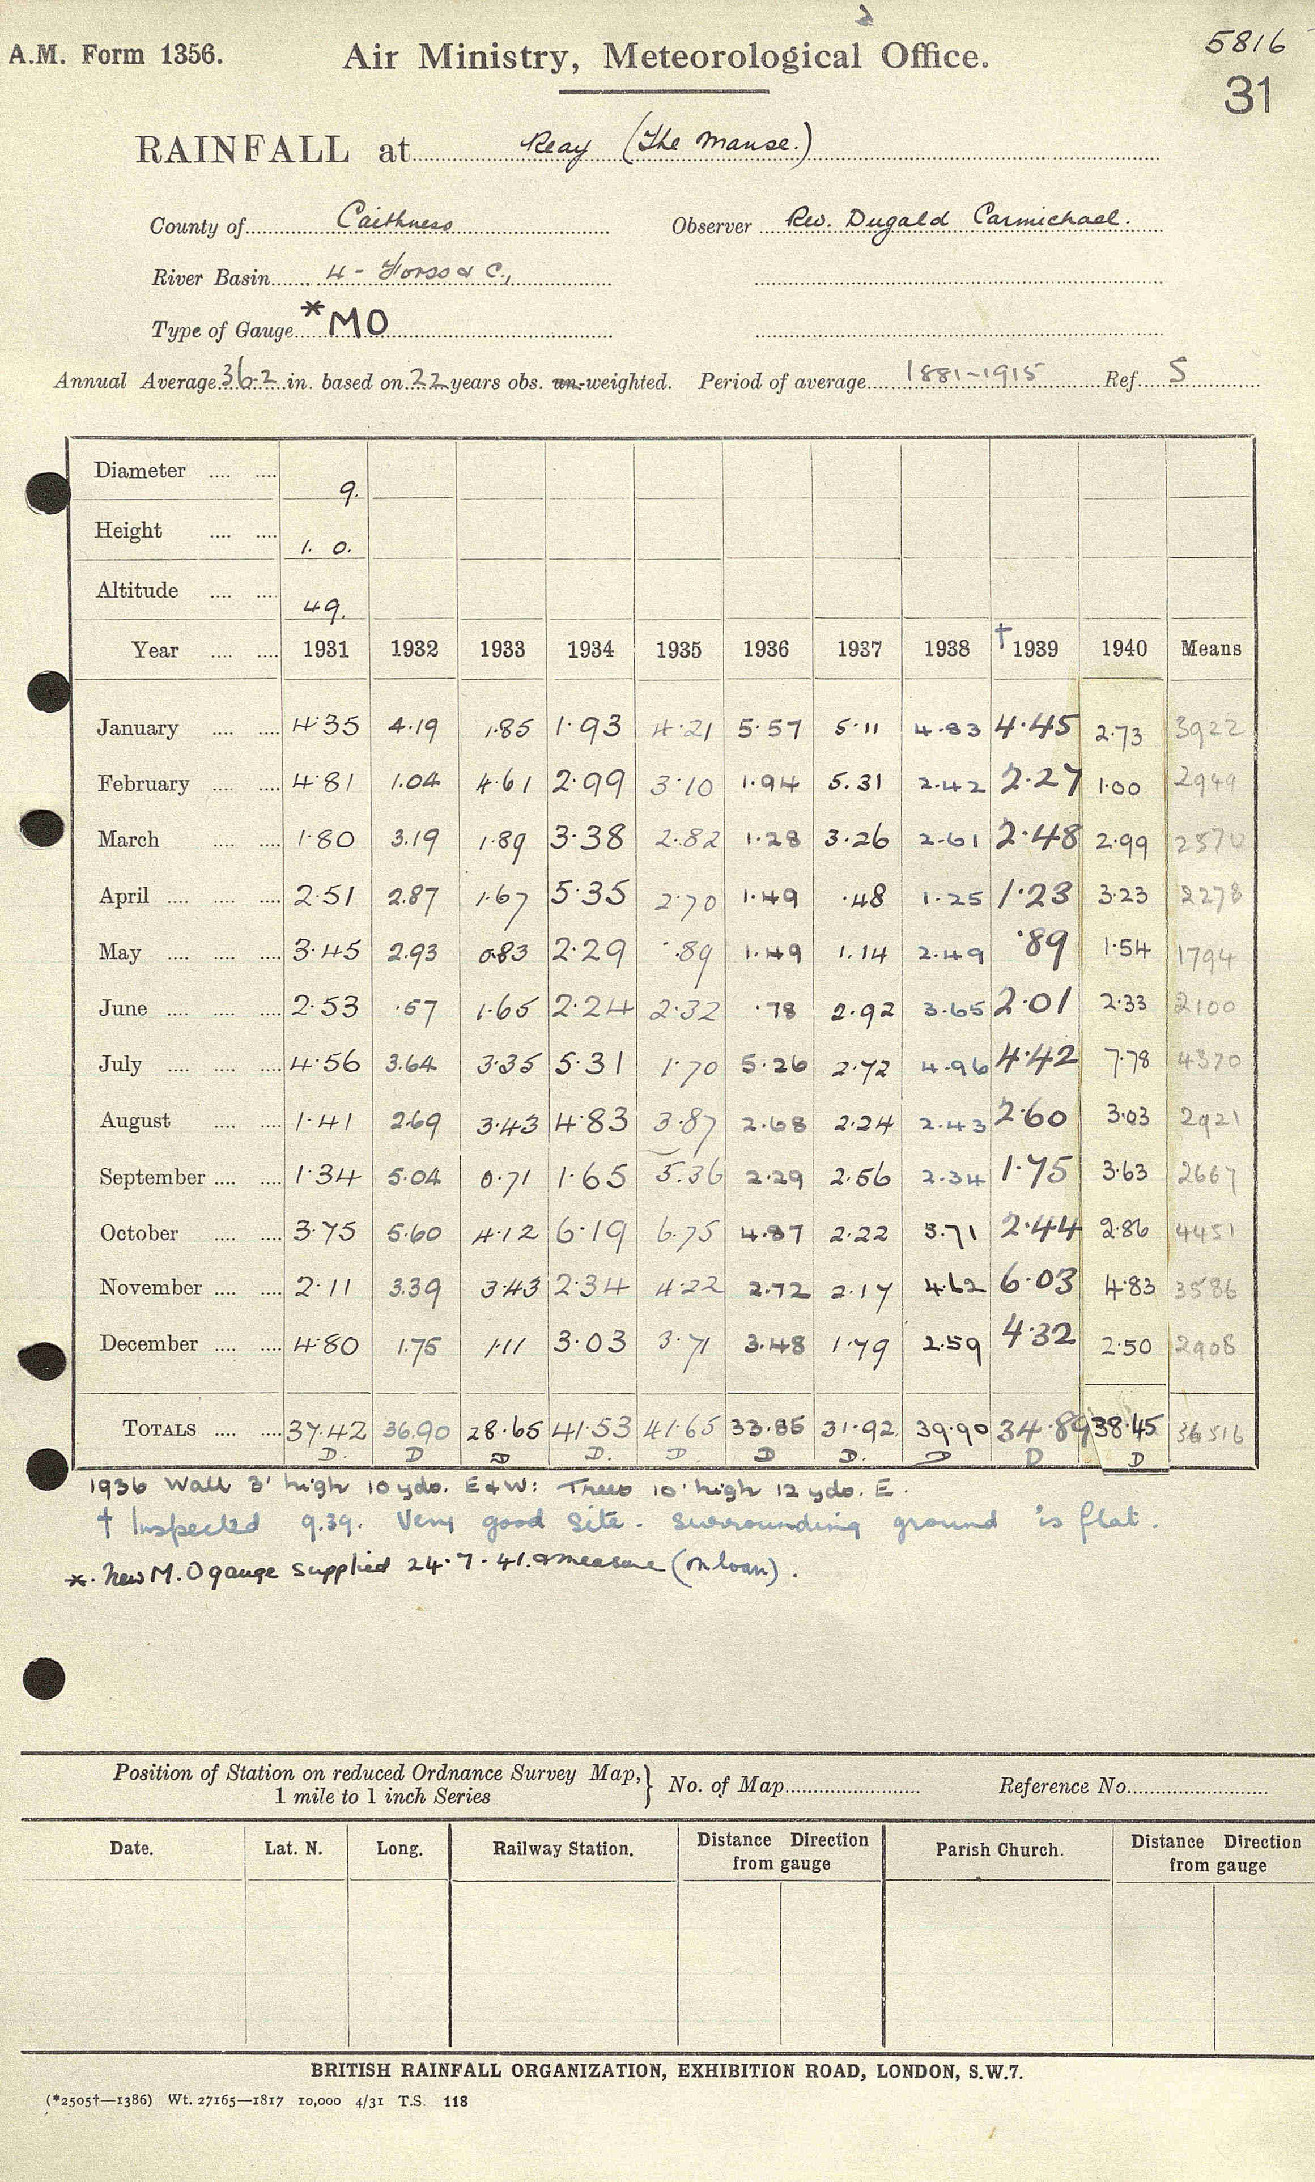 5816
A.M. Form 1356. Air Ministry, Meteorological Office.
31
RAINFALL at Reay (The Manse.)
County of Caithness Observer Rev. Dugald Carmichael.
River Basin 4 - Forss & C.,
Type of Gauge *MO
Annual Average 36.2 in. based on 22 years obs. un-weighted. Period of average 1881-1915 Ref. S
Diameter 9.
Height 1. 0.
Altitude 49.
Year 1931 1932 1933 1934 1935 1936 1937 1938 †1939 1940 Means
January 4.35 4.19 1.85 1.93 4.21 5.57 5.11 4.83 4.45 2.73 3922
February 4.81 1.04 4.61 2.99 3.10 1.94 5.31 2.42 2.27 1.00 2949
March 1.80 3.19 1.89 3.38 2.82 1.28 3.26 2.61 2.48 2.99 2570
April 2.51 2.87 1.67 5.35 2.70 1.49 .48 1.25 1.23 3.23 2278
May 3.45 2.93 0.83 2.29 .89 1.49 1.14 2.49 .89 1.54 1794
June 2.53 .57 1.65 2.24 2.32 .78 2.92 3.65 2.01 2.33 2100
July 4.56 3.64 3.35 5.31 1.70 5.26 2.72 4.96 4.42 7.78 4370
August 1.41 2.69 3.43 4.83 3.87 2.68 2.24 2.43 2.60 3.03 2921
September 1.34 5.04 0.71 1.65 5.36 2.29 2.56 2.34 1.75 3.63 2667
October 3.75 5.60 4.12 6.19 6.75 4.87 2.22 3.71 2.44 2.86 4451
November 2.11 3.39 3.43 2.34 4.22 2.72 2.17 4.62 6.03 4.83 3586
December 4.80 1.75 1.11 3.03 3.71 3.48 1.79 2.59 4.32 2.50 2908
TOTALS 37.42 36.90 28.65 41.53 41.65 33.85 31.92 39.90 34.89 38.45 36516
D. D D D. D D D. D D D
1936 Wall 3' high 10 yds. E & W: Trees 10' high 12 yds. E.
† Inspected 9.39. Very good site. Surrounding ground is flat.
*. New M.O gauge supplied 24.7.41. & measure (on loan).
Position of Station on reduced Ordnance Survey Map, } No. of Map Reference No.
1 mile to 1 inch Series
Date. Lat. N. Long. Railway Station. Distance from gauge Direction Parish Church. Distance from gauge Direction
BRITISH RAINFALL ORGANIZATION, EXHIBITION ROAD, LONDON, S.W.7.
(*2505†—1386) Wt. 27165—1817 10,000 4/31 T.S. 118